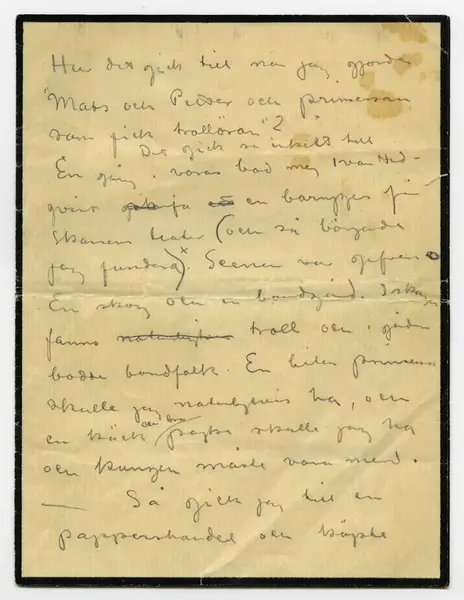 Hur det gick till när jag gjorde
"Mats och Petter och prinsessan
som fick trollöron"?
Det gick så enkelt till.
En gång i våras bad mig Ivar Hed-
qvist en barnpjes för
Skansens teater (och så började
jag fundera)x. Scenen var gifven
En skog och en bondgård. I skogen
fanns naturligtvis troll och i gården
bodde bondfolk. En liten prinsess
skulle jag naturligtvis ha, och
en käck och bra pojke skulle jag ha
och kungen måste vara med.
— Så gick jag till en
pappershandel och köpte